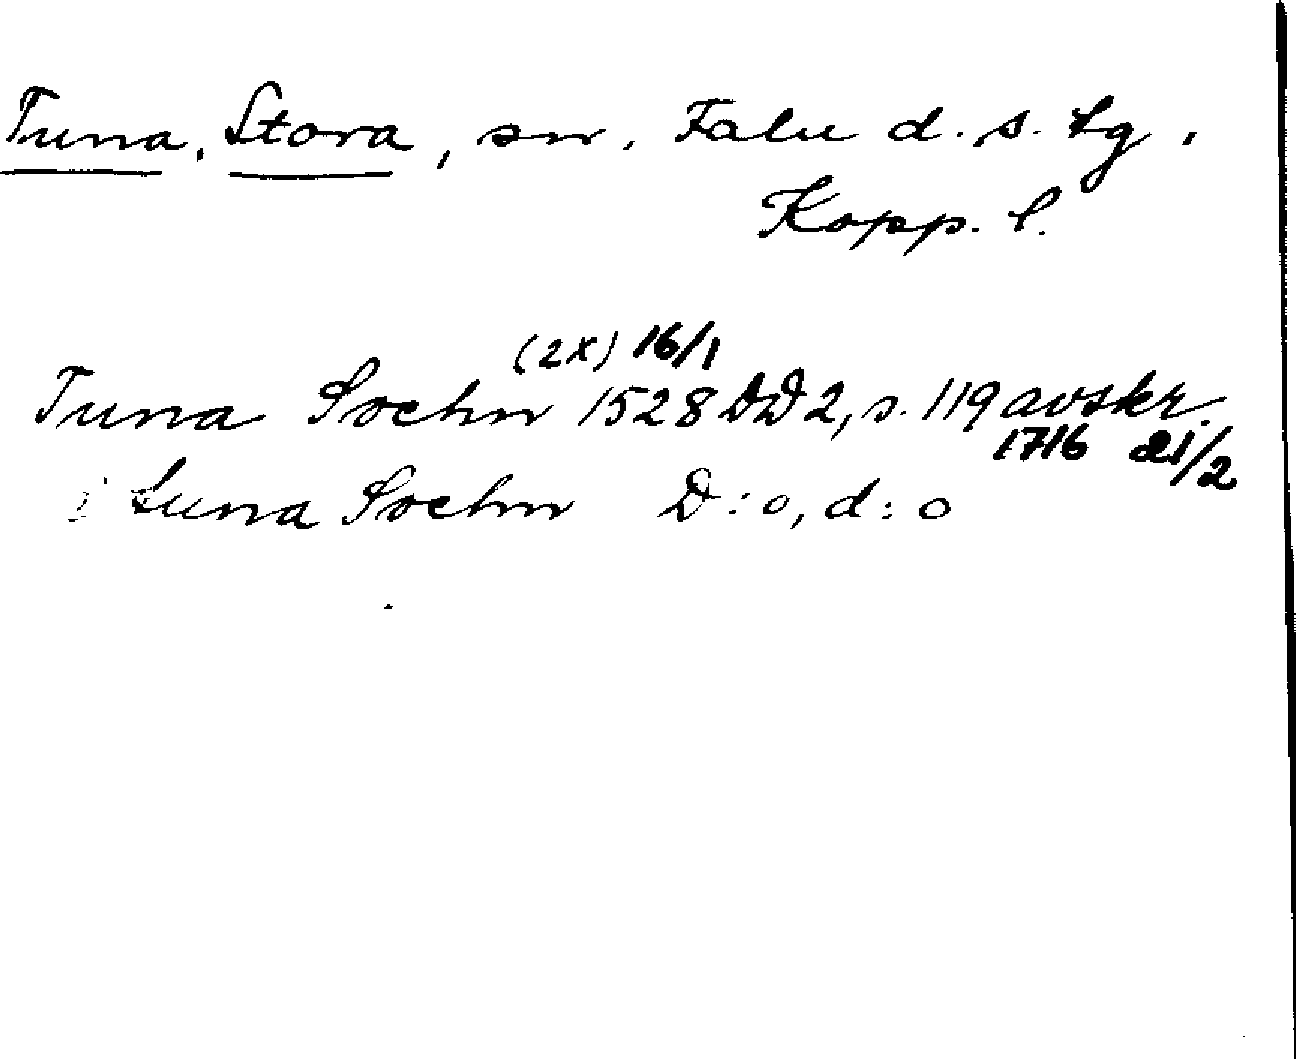 Tuna, Stora, sn, Falu d. s. tg,
Kopp. l.
(2x) 16/1
Tuna Sochn 1528 DD 2, s. 119 avskr.
1716 21/2
i tuna Sochn D:o, d:o